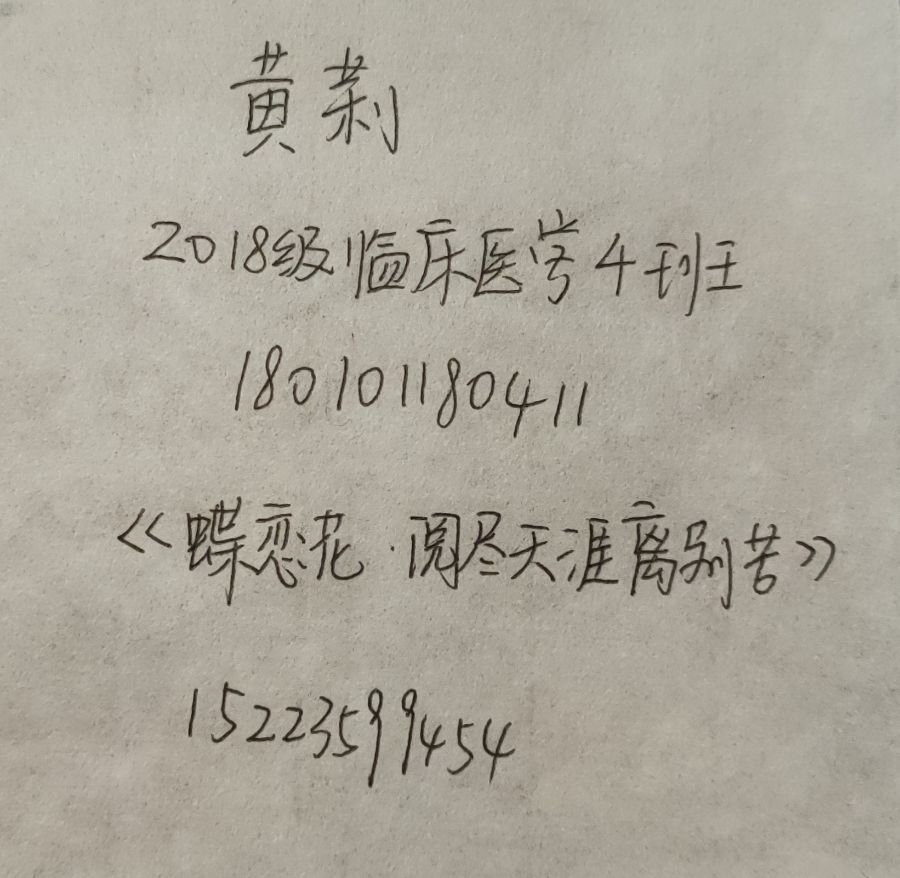 黄莿
2018级临床医学4班
180101180411
《蝶恋花·阅尽天涯离别苦》
15223599454